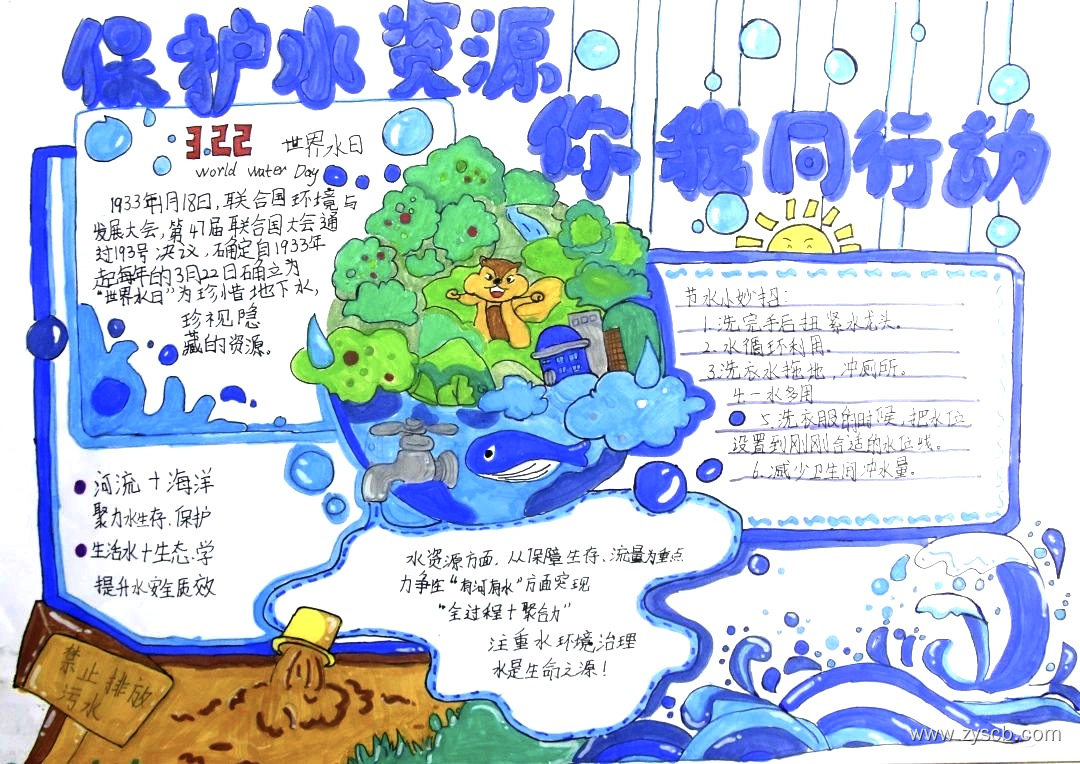 保护水资源
你我同行动
3.22 世界水日
world water Day
1933年1月18日，联合国环境与
发展大会，第47届联合国大会通
过193号决议，确定自1933年
起每年的3月22日确立为
“世界水日”为珍惜地下水，
珍视隐
藏的资源。
节水小妙招：
1.洗完手后扭紧水龙头。
2.水循环利用。
3.洗衣水拖地，冲厕所。
4一水多用
5.洗衣服的时候，把水位
设置到刚刚合适的水位线。
6.减少卫生间冲水量。
河流十海洋
聚力水生存、保护
生活水十生态、学
提升水安全质效
水资源方面，从保障生存、流量为重点
力争在“有河有水”方面实现
“全过程十聚合力”
注重水环境治理
水是生命之源！
禁止排放
污水
www.zyscb.com